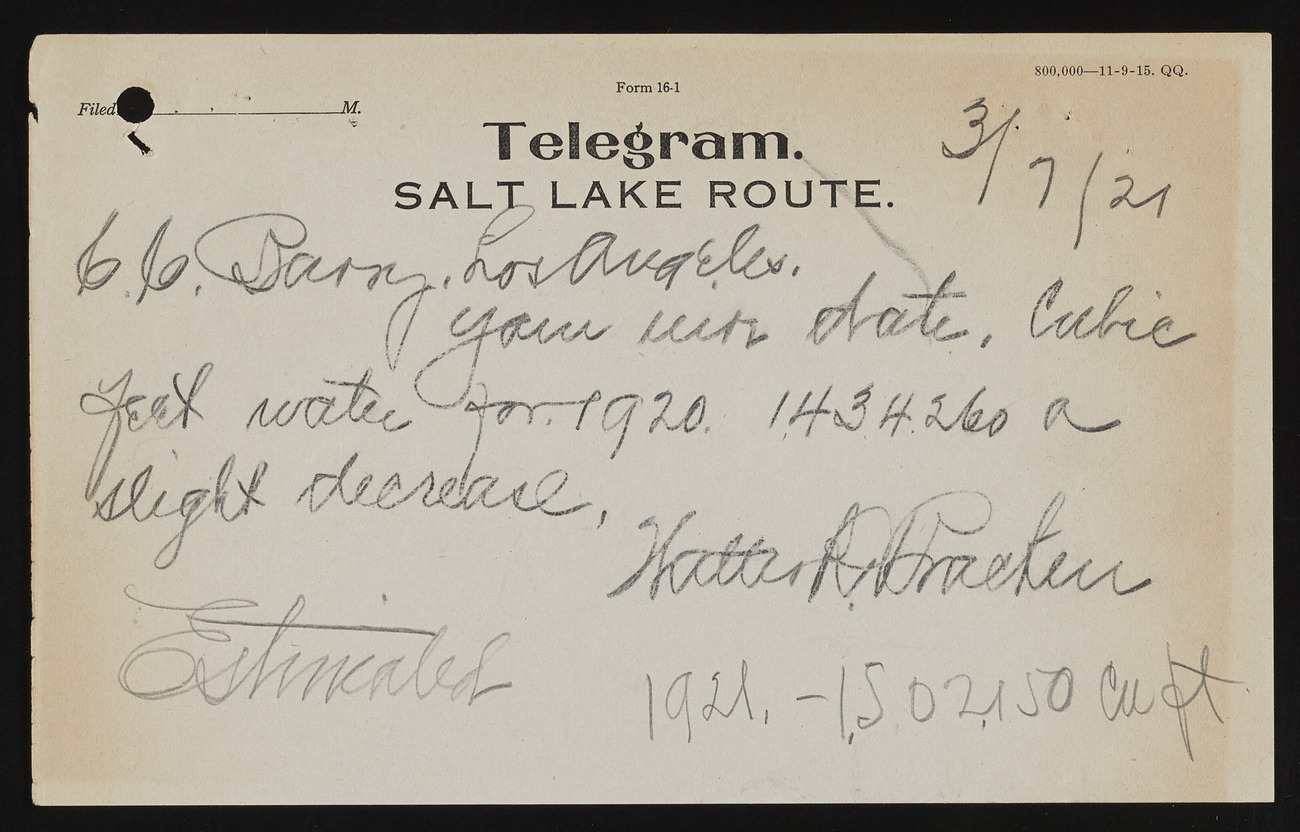 800,000—11-9-15. QQ.
Form 16-1
Filed M.
Telegram.
SALT LAKE ROUTE.
3/7/21
C. C. Barry. Los Angeles.
Your wire date. Cubic
feet water for 1920. 1,434.260 a
slight decrease,
Walter R. Bracken
Estimated
1921. - 1,502,150 cu ft